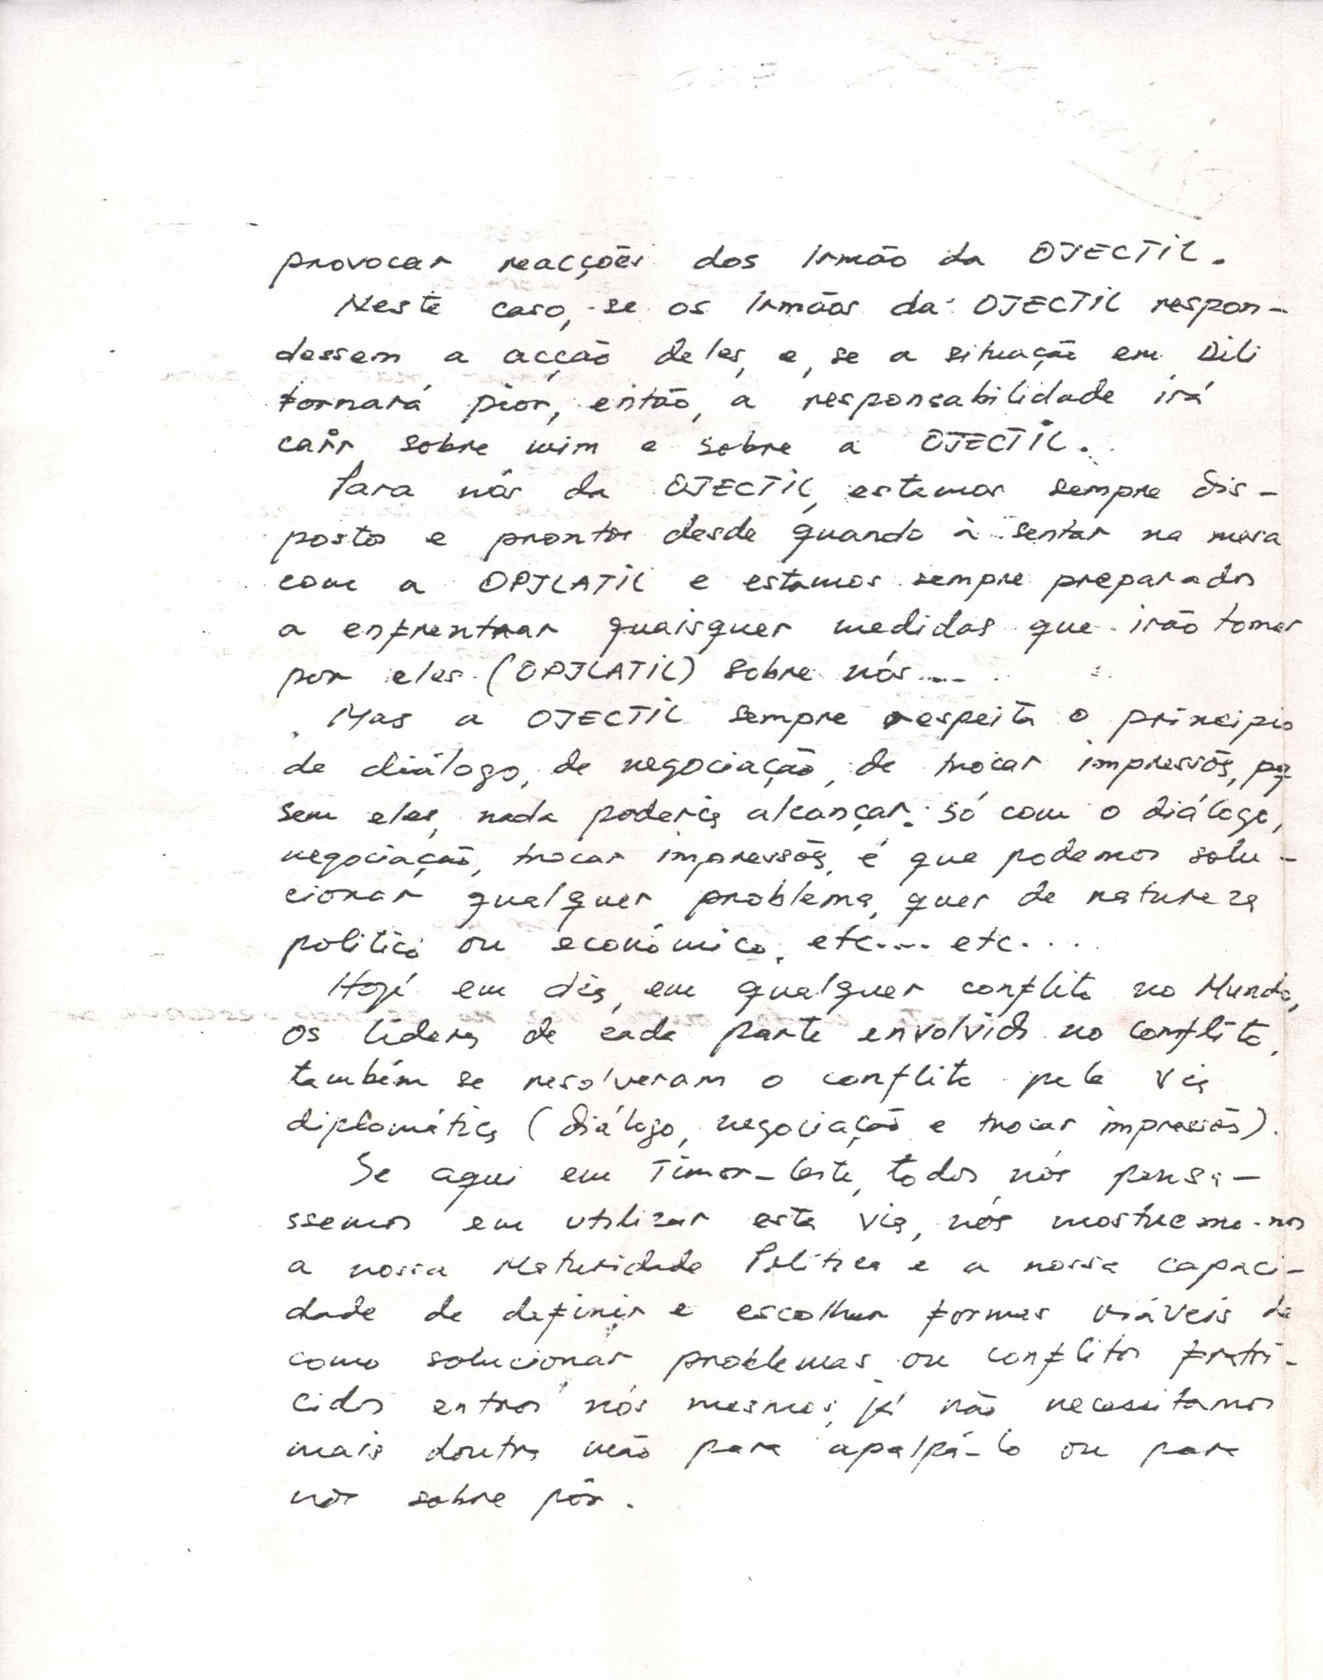 provocar reacções dos irmão da OJECTIL.
Neste caso, se os irmãos da OJECTIL respon-
dessem a acção deles, e, se a situação em Dili
tornará pior, então, a responsabilidade irá
cair sobre mim e sobre a OJECTIL.
Para nós da OJECTIL, estamos sempre dis-
posto e prontos desde quando à sentar na mesa
com a OPJLATIL e estamos sempre preparados
a enfrentrar quaisquer medidas que irão tomar
por eles (OPJLATIL) sobre nós....
Mas a OJECTIL sempre respeita o principio
de diálogo, de negociação, de trocar impressões, pq
sem eles, nada poderia alcançar. Só com o diálogo,
negociação, trocar impressões, é que podemos solu-
cionar qualquer problema, quer de natureza
politico ou económico, etc.... etc....
Hoje em dia, em qualquer conflito no Mundo,
os lideres de cada parte envolvido no conflito,
também se resolveram o conflito pela via
diplomática (diálogo, negociação e trocar impressões).
Se aqui em Timor-Leste, todos nós pensa-
ssemos em utilizar esta via, nós mostremo-nos
a nossa Maturidade Politica e a nossa capaci-
dade de definir e escolher formas viáveis de
como solucionar problemas ou conflitos fratri-
cidos entre nós mesmos, já não necessitamos
mais doutra mão para apalpá-lo ou para
nos sobre pôr.